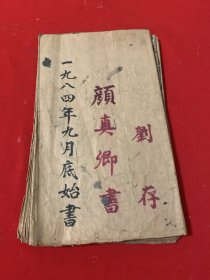 劉存
顏真卿書
一九八四年九月底始書